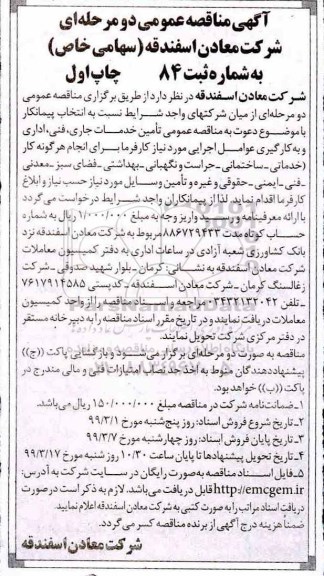 آگهی مناقصه عمومی دو مرحله‌ای
شرکت معادن اسفندقه (سهامی خاص)
به شماره ثبت ۸۴ چاپ اول
شرکت معادن اسفندقه در نظر دارد از طریق برگزاری مناقصه عمومی
دو مرحله‌ای از میان شرکتهای واجد شرایط نسبت به انتخاب پیمانکار
با موضوع دعوت به مناقصه عمومی تأمین خدمات جاری، فنی، اداری
و به کارگیری عوامل اجرایی مورد نیاز کارفرما برای انجام هرگونه کار
(خدماتی - ساختمانی - حراست و نگهبانی - بهداشتی - فضای سبز - معدنی
- فنی - ایمنی - حقوقی و غیره و تأمین وسایل مورد نیاز حسب نیاز و ابلاغ
کارفرما اقدام نماید. لذا از پیمانکاران واجد شرایط درخواست می گردد
با ارائه معرفینامه و رسید واریز وجه به مبلغ ۱/۰۰۰/۰۰۰ ریال به شماره
حساب کوتاه مدت ۸۸۶۷۲۹۴۳۳ مربوط به شرکت معادن اسفندقه نزد
بانک کشاورزی شعبه آزادی در ساعات اداری به دفتر کمیسیون معاملات
شرکت معادن اسفندقه به نشانی: کرمان - بلوار شهید صدوقی - شرکت
زغالسنگ کرمان - شرکت معادن اسفندقه - کدپستی ۷۶۱۷۹۱۴۵۸۵
- تلفن ۰۳۴۳۲۱۳۲۰۴۲ مراجعه و اسناد مناقصه را از واحد کمیسیون
معاملات دریافت نمایند و در تاریخ مقرر اسناد مناقصه را به دبیرخانه مستقر
در دفتر مرکزی شرکت تحویل نمایند.
مناقصه به صورت دو مرحله‌ای برگزار می‌شود و بازگشایی پاکت ((ج))
پیشنهاددهندگان منوط به اخذ حدنصاب امتیازات فنی و مالی مندرج در
پاکت ((ب)) خواهد بود.
۱- ضمانت‌نامه شرکت در مناقصه مبلغ ۱۵۰/۰۰۰/۰۰۰ ریال می‌باشد.
۲- تاریخ شروع فروش اسناد: روز پنج‌شنبه مورخ ۹۹/۳/۱
۳- تاریخ پایان فروش اسناد: روز چهارشنبه مورخ ۹۹/۳/۷
۴- تاریخ تحویل پیشنهادها تا پایان ساعت ۱۰/۳۰ روز شنبه مورخ ۹۹/۳/۱۷
۵- فایل اسناد مناقصه به صورت رایگان در سایت شرکت به آدرس:
http://emcgem.ir قابل دریافت می‌باشد. لازم به ذکر است در صورت
دریافت اسناد مراتب را به صورت کتبی به شرکت معادن اسفندقه اعلام نمایید.
ضمناً هزینه درج آگهی از برنده مناقصه کسر می گردد.
شرکت معادن اسفندقه